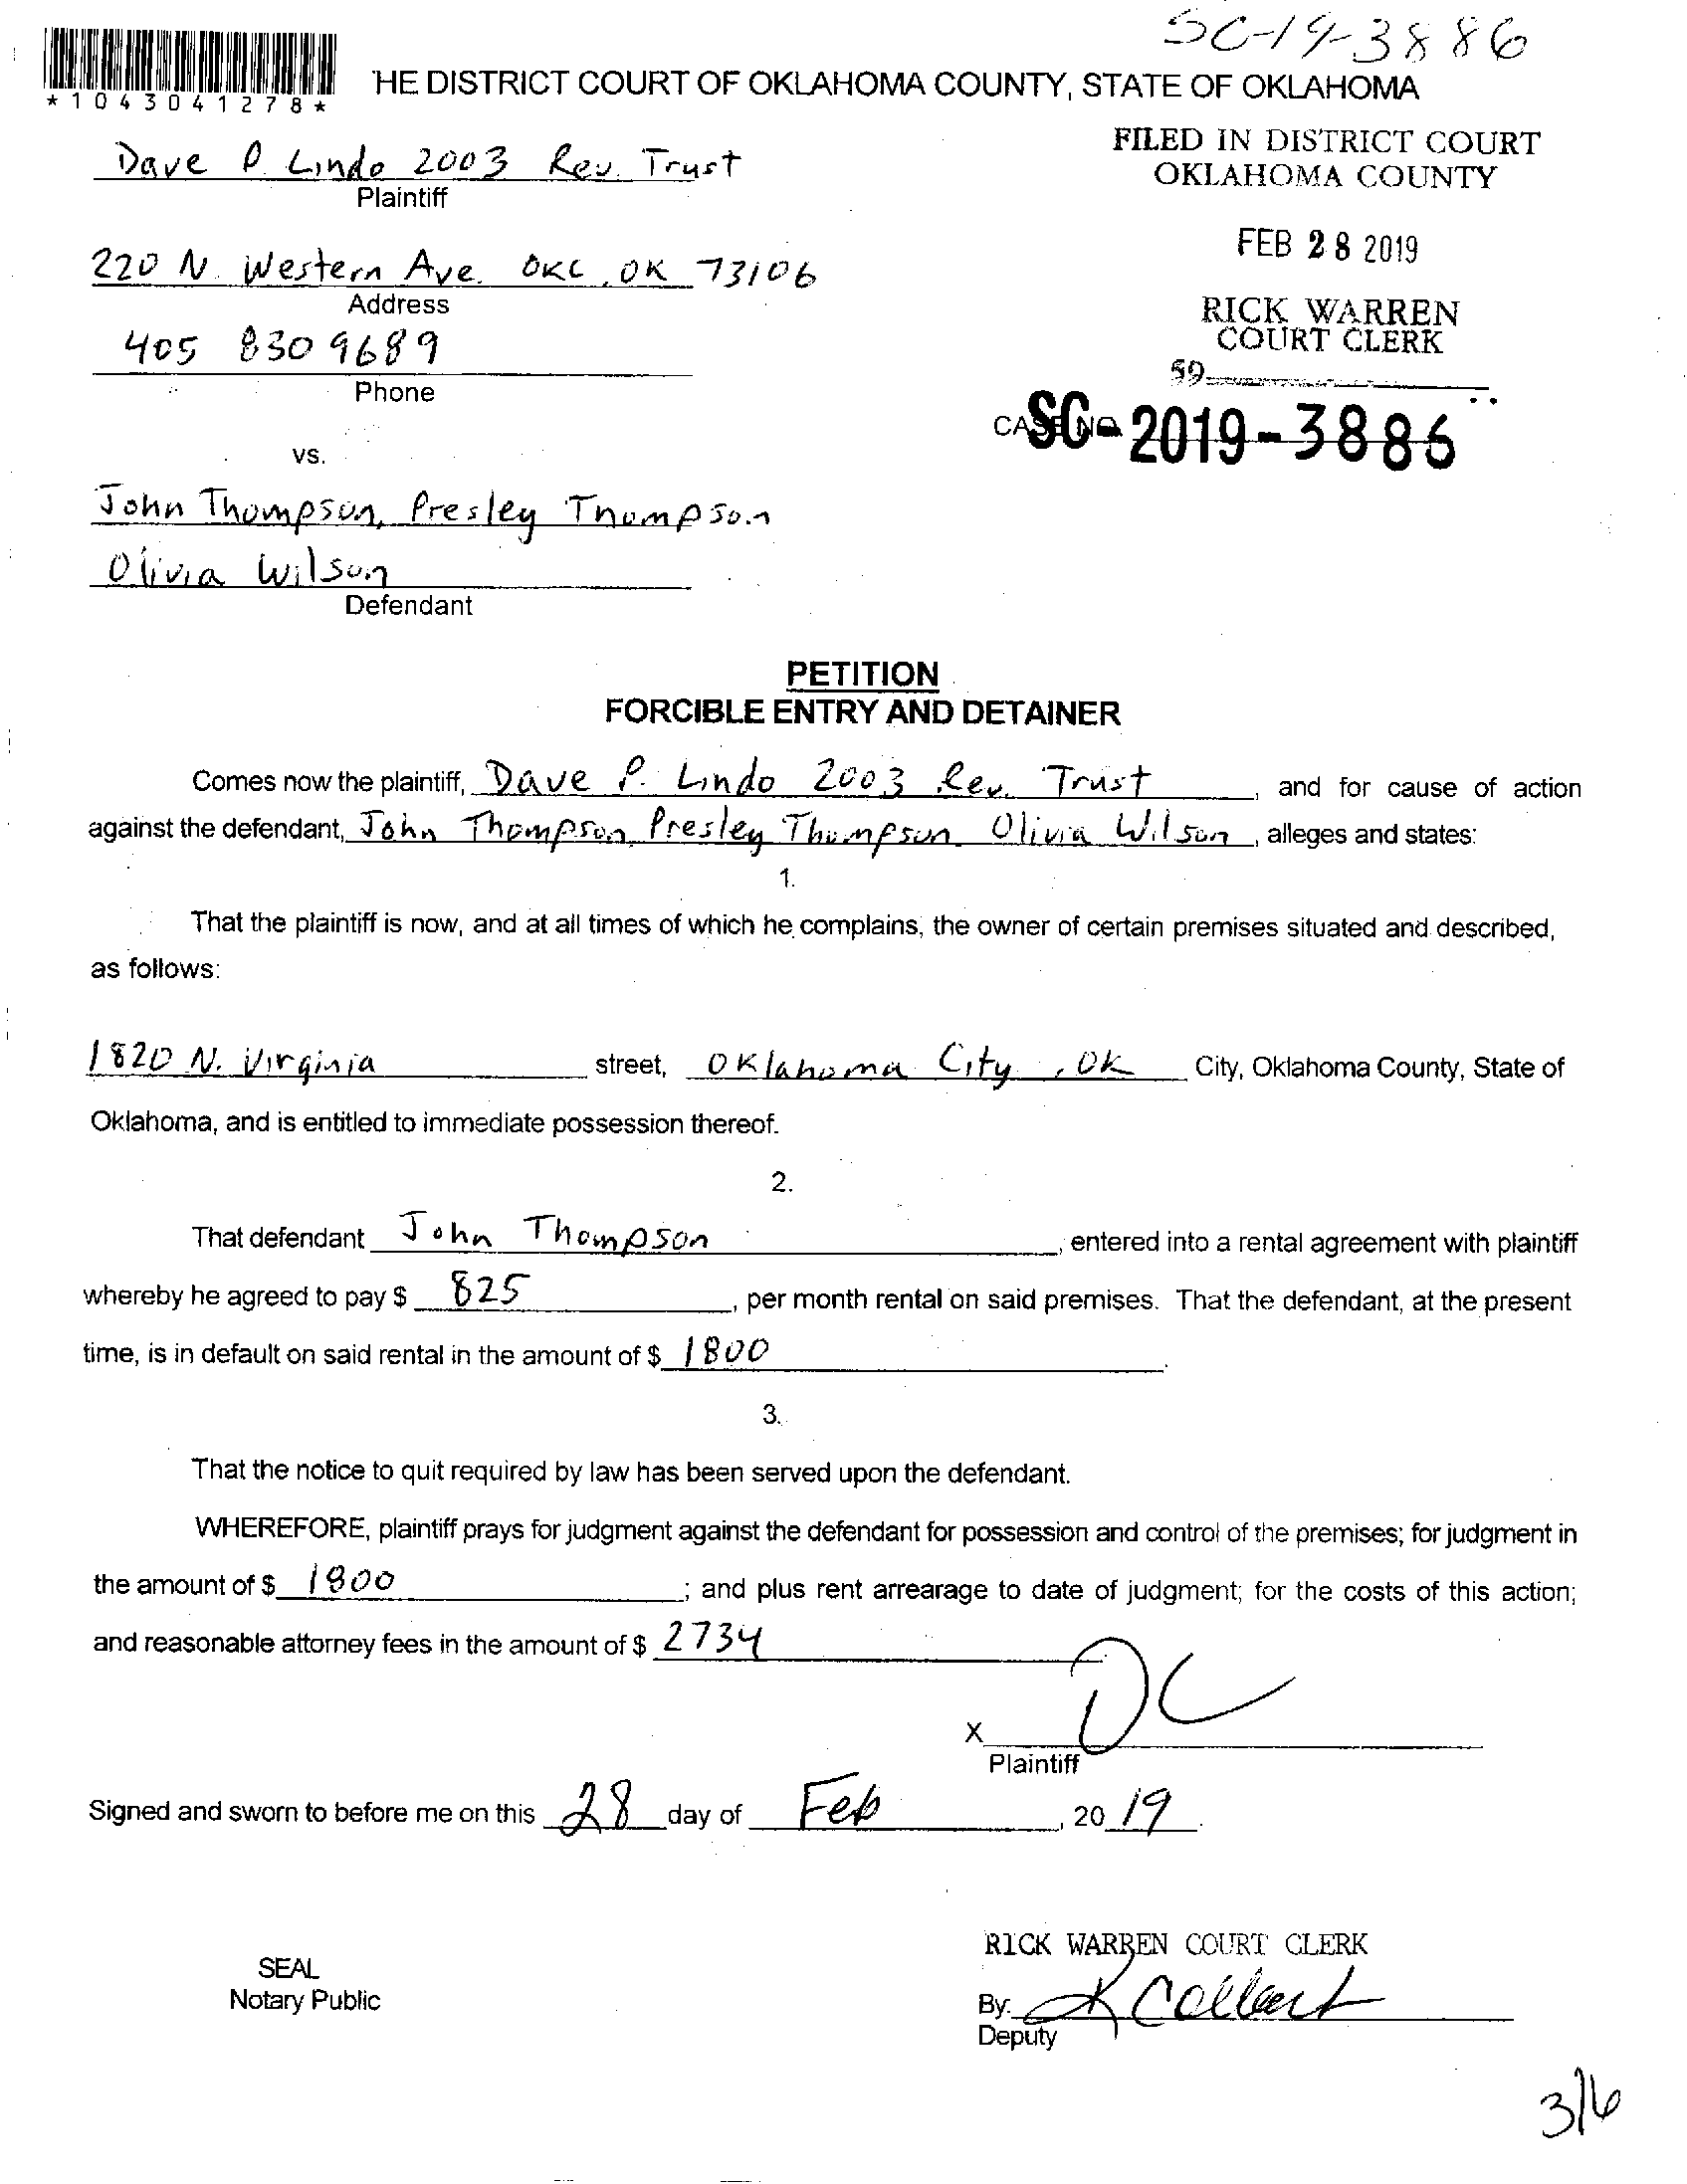 SC-19-3886
*1043041278*
HE DISTRICT COURT OF OKLAHOMA COUNTY, STATE OF OKLAHOMA
Dave P. Lindo 2003 Rev. Trust
Plaintiff
FILED IN DISTRICT COURT
OKLAHOMA COUNTY
FEB 28 2019
RICK WARREN
COURT CLERK
59
220 N. Western Ave. OKC, OK 73106
Address
405 830 9689
Phone
CASE NO. SC-2019-3886
vs.
John Thompson, Presley Thompson
Olivia Wilson
Defendant
PETITION
FORCIBLE ENTRY AND DETAINER
Comes now the plaintiff, Dave P. Lindo 2003 Rev. Trust, and for cause of action
against the defendant, John Thompson, Presley Thompson Olivia Wilson, alleges and states:
1.
That the plaintiff is now, and at all times of which he complains, the owner of certain premises situated and described,
as follows:
1820 N. Virginia street, Oklahoma City, OK City, Oklahoma County, State of
Oklahoma, and is entitled to immediate possession thereof.
2.
That defendant John Thompson, entered into a rental agreement with plaintiff
whereby he agreed to pay $ 825, per month rental on said premises. That the defendant, at the present
time, is in default on said rental in the amount of $ 1800.
3.
That the notice to quit required by law has been served upon the defendant.
WHEREFORE, plaintiff prays for judgment against the defendant for possession and control of the premises; for judgment in
the amount of $ 1800; and plus rent arrearage to date of judgment; for the costs of this action;
and reasonable attorney fees in the amount of $ 2734
X DC
Plaintiff
Signed and sworn to before me on this 28 day of Feb, 20 19.
RICK WARREN COURT CLERK
SEAL
Notary Public
By: K Collect
Deputy
3/6